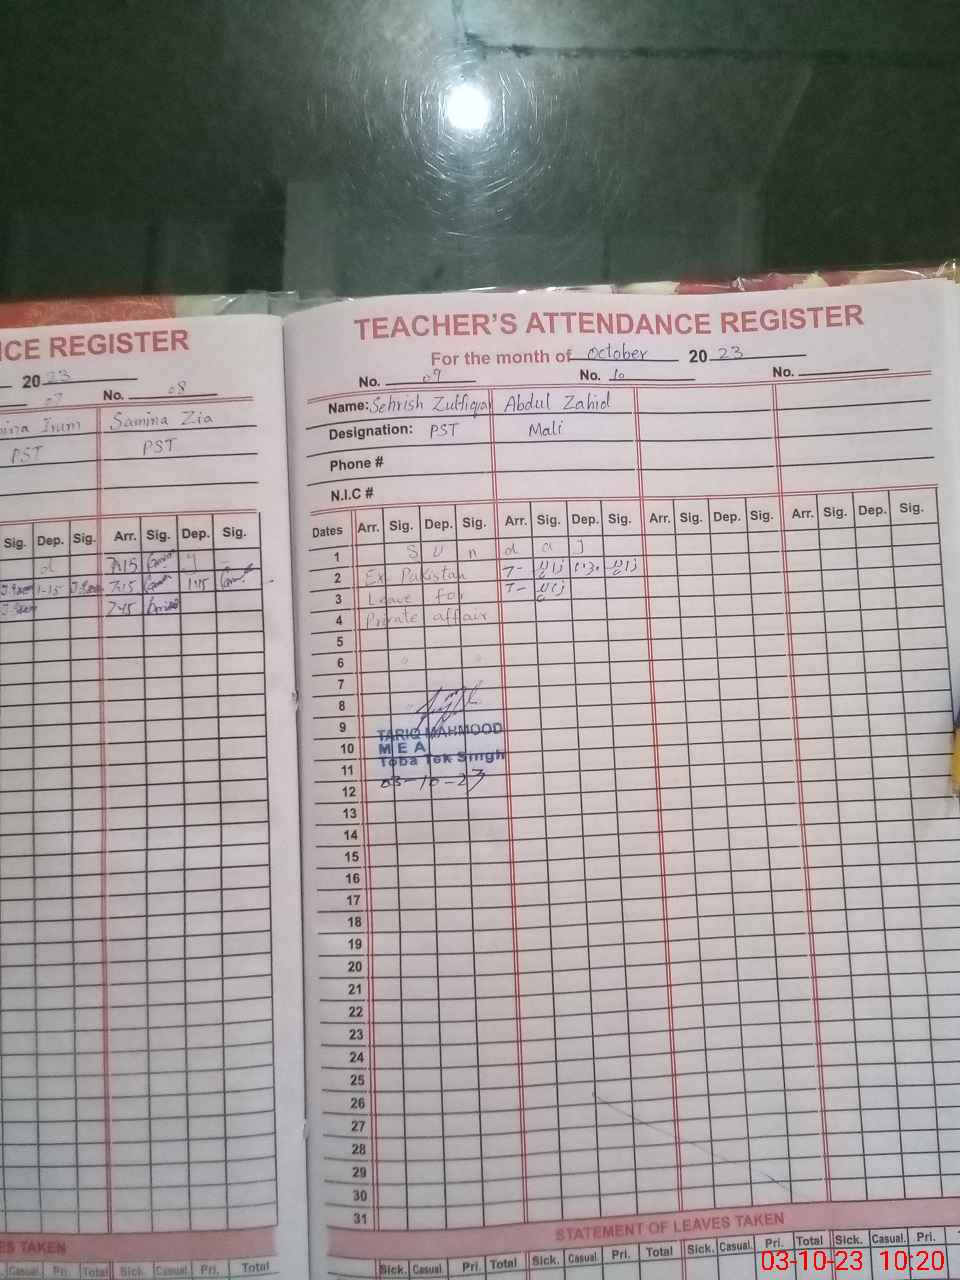 NCE REGISTER
20 23
07 No. 08
Irum Samina Zia
PST PST
Sig. Dep. Sig. Arr. Sig. Dep. Sig.
d 7:15 y
1-15 7:15 1:15
7:45
ES TAKEN
Casual. Pri. Total Sick. Casual. Pri. Total
TEACHER'S ATTENDANCE REGISTER
For the month of October 20 23
No. 09 No. 10 No.
Name: Sehrish Zulfiqar Abdul Zahid
Designation: PST Mali
Phone #
N.I.C #
Dates Arr. Sig. Dep. Sig. Arr. Sig. Dep. Sig. Arr. Sig. Dep. Sig. Arr. Sig. Dep. Sig.
1 S u n d a y
2 Ex. Pakistan 7-
3 Leave for 7-
4 Private affair
5
6 " "
7
8
9 TARIQ MAHMOOD
10 M E A
11 Toba Tek Singh
12 03-10-23
13
14
15
16
17
18
19
20
21
22
23
24
25
26
27
28
29
30
31
STATEMENT OF LEAVES TAKEN
Sick. Casual. Pri. Total Sick. Casual. Pri. Total Sick. Casual. Pri. Total Sick. Casual. Pri.
03-10-23 10:20